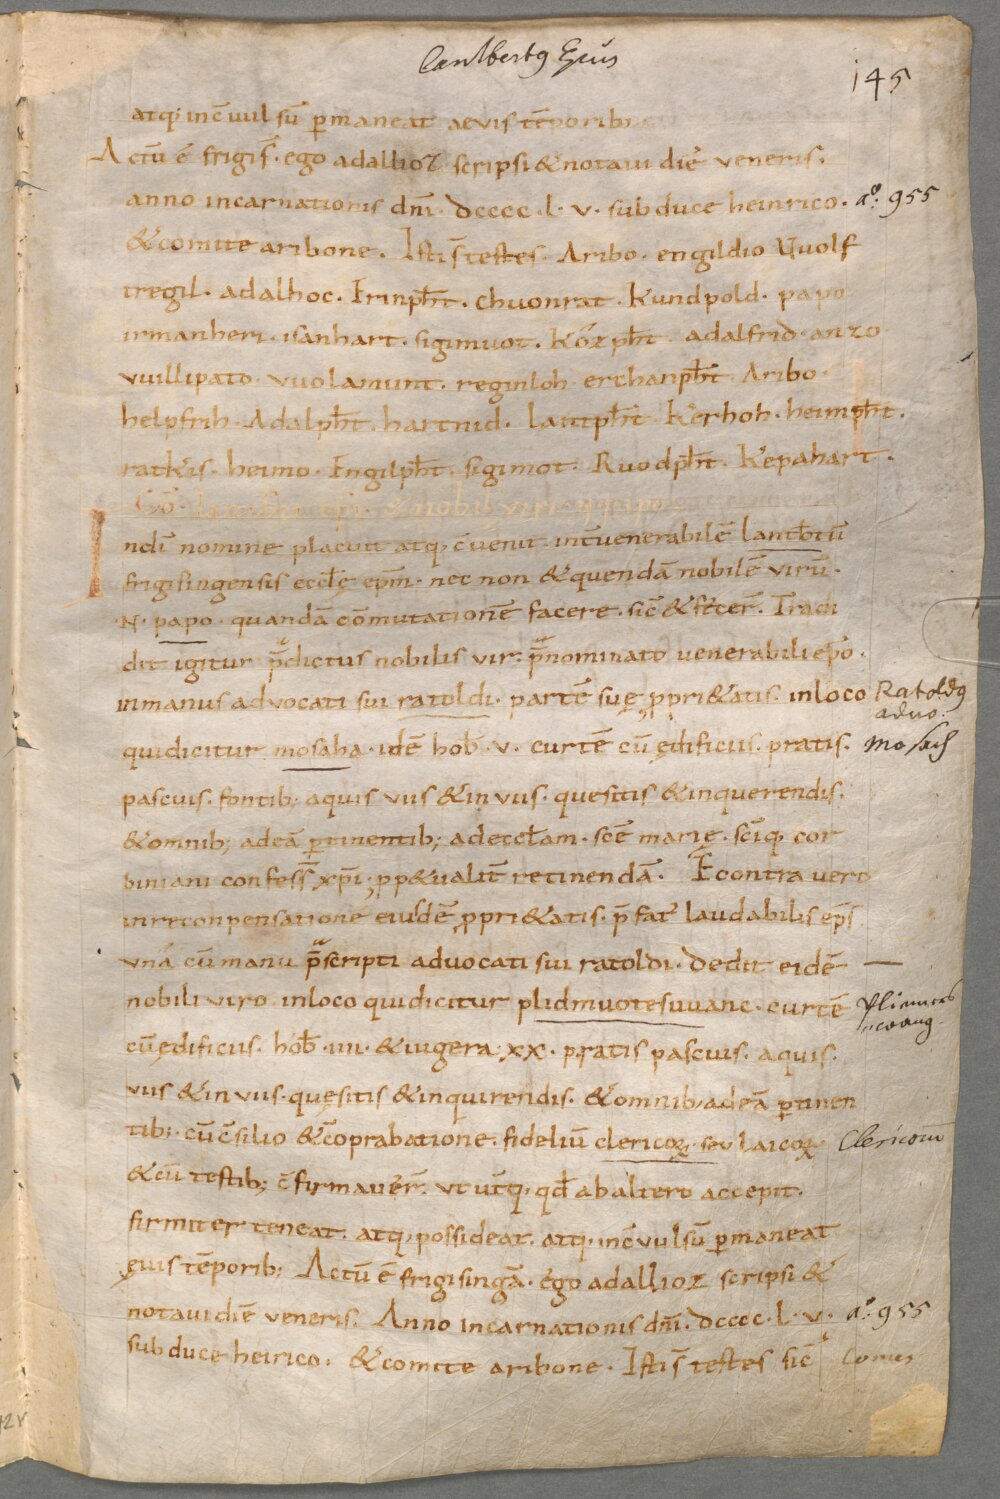 Lantbertus Epūs
145
atq; inc̄uulsū p̄maneat aevis tēporib;
Actū ē frigiſ̄. ego adalhoz scripsi & notaui diē veneris.
anno incarnationis dn̄i. dcccc. l. v. sub duce heinrico. aº. 955
& comite aribone. Isti s̄ testes. Aribo. engildio Vuolf
tregil. adalhoc. Irinpħt. chuonrat. Kundpold. papo
irmanheri. isanhart. sigimuot. Kózpħt. adalfrid. anzo
vuillipato. vuolamunt. reginloh. erchanpħt. Aribo.
helpfrih. Adalpħt. hartnid. lantpħt. Kerhoh. heimpħt.
ratkis. heimo. Ingilpħt. sigimot. Ruodpħt. Kepahart.
& nobil viri
In dī nomine placuit atq; c̄venit int̄ venerabilē lantb̄tū
frigisingensis eccl̄ę ep̄m. nec non & quendā nobilē virū.
.N. papo. quandā cōmutationē facere. sic̄ & fēcer̄. Tradi
dit igitur p̄dictus nobilis vir. p̄nominato venerabili ep̄o.
in manus advocati sui ratoldi. partē suę ppri&atis. in loco Ratoldus
aduo.
qui dicitur mosaha. idē hob̄. v. curtē cū ędificiis. pratis. Mosach
pascuis. fontib; aquis viis & in viis. quesitis & inquerendis.
& omnib; ad eā p̄tinentib; ad eccl̄am. scē marię. scīq; cor
biniani confess̄ xp̄i. pp&ualit̄ retinendā. E contra vero
in reconpensationē eiusdē ppri&atis. p̄fat̄ laudabilis ep̄s
vná cū manu p̄scripti advocati sui ratoldi. dedit eidē
nobili viro in loco qui dicitur plidmuotesuuanc. curtē
cū ędificiis. hob̄. iiii. & iugera. xx. pratis pascuis. aquis.
viis & in viis. quęsitis & inquirendis. & omnib; ad eā p̄tinen
tib;. cū c̄silio & c̄oprabatione. fideliū clericoꝝ. seu laicoꝝ. Clericorū
& cū testib; c̄firmauēr̄. vt ut̄q; qd̄ ab altero accepit.
firmiter teneat. atq; possideat. atq; inc̄vulsū p̄maneat
ęuis tēporib; Actū ē frigisingā. ego adalhoz scripsi &
notaui diē veneris. Anno incarnationis dn̄i. dcccc. l. v. aº. 955
sub duce heirico. & comite aribone. Isti s̄ testes sic̄ Comes